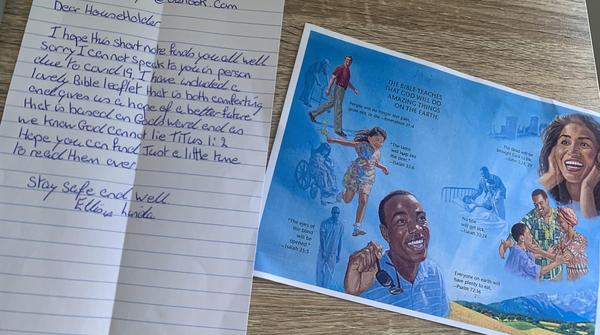 @outlook.com
Dear HouseHolder
I hope this short note finds you all well
sorry I cannot speak to you in person
due to covid 19, I have included a
lovely Bible leaflet that is both comforting
and gives us a hope of a better future
that is based on God word and as
we know God cannot lie Titus 1:2
Hope you can find Just a little time
to read them over
Stay safe and well
THE BIBLE TEACHES
THAT GOD WILL DO
AMAZING THINGS
ON THE EARTH.
People will no longer feel pain,
grow old, or die.
"The lame
will leap like
the deer."
—Isaiah 35:6
The dead will be
brought back to life.
—John 5:28, 29
No one
will get sick.
—Isaiah 33:24
"The eyes of
the blind
will be
opened."
—Isaiah 35:5
Everyone on earth will
have plenty to eat.
—Psalm 72:16